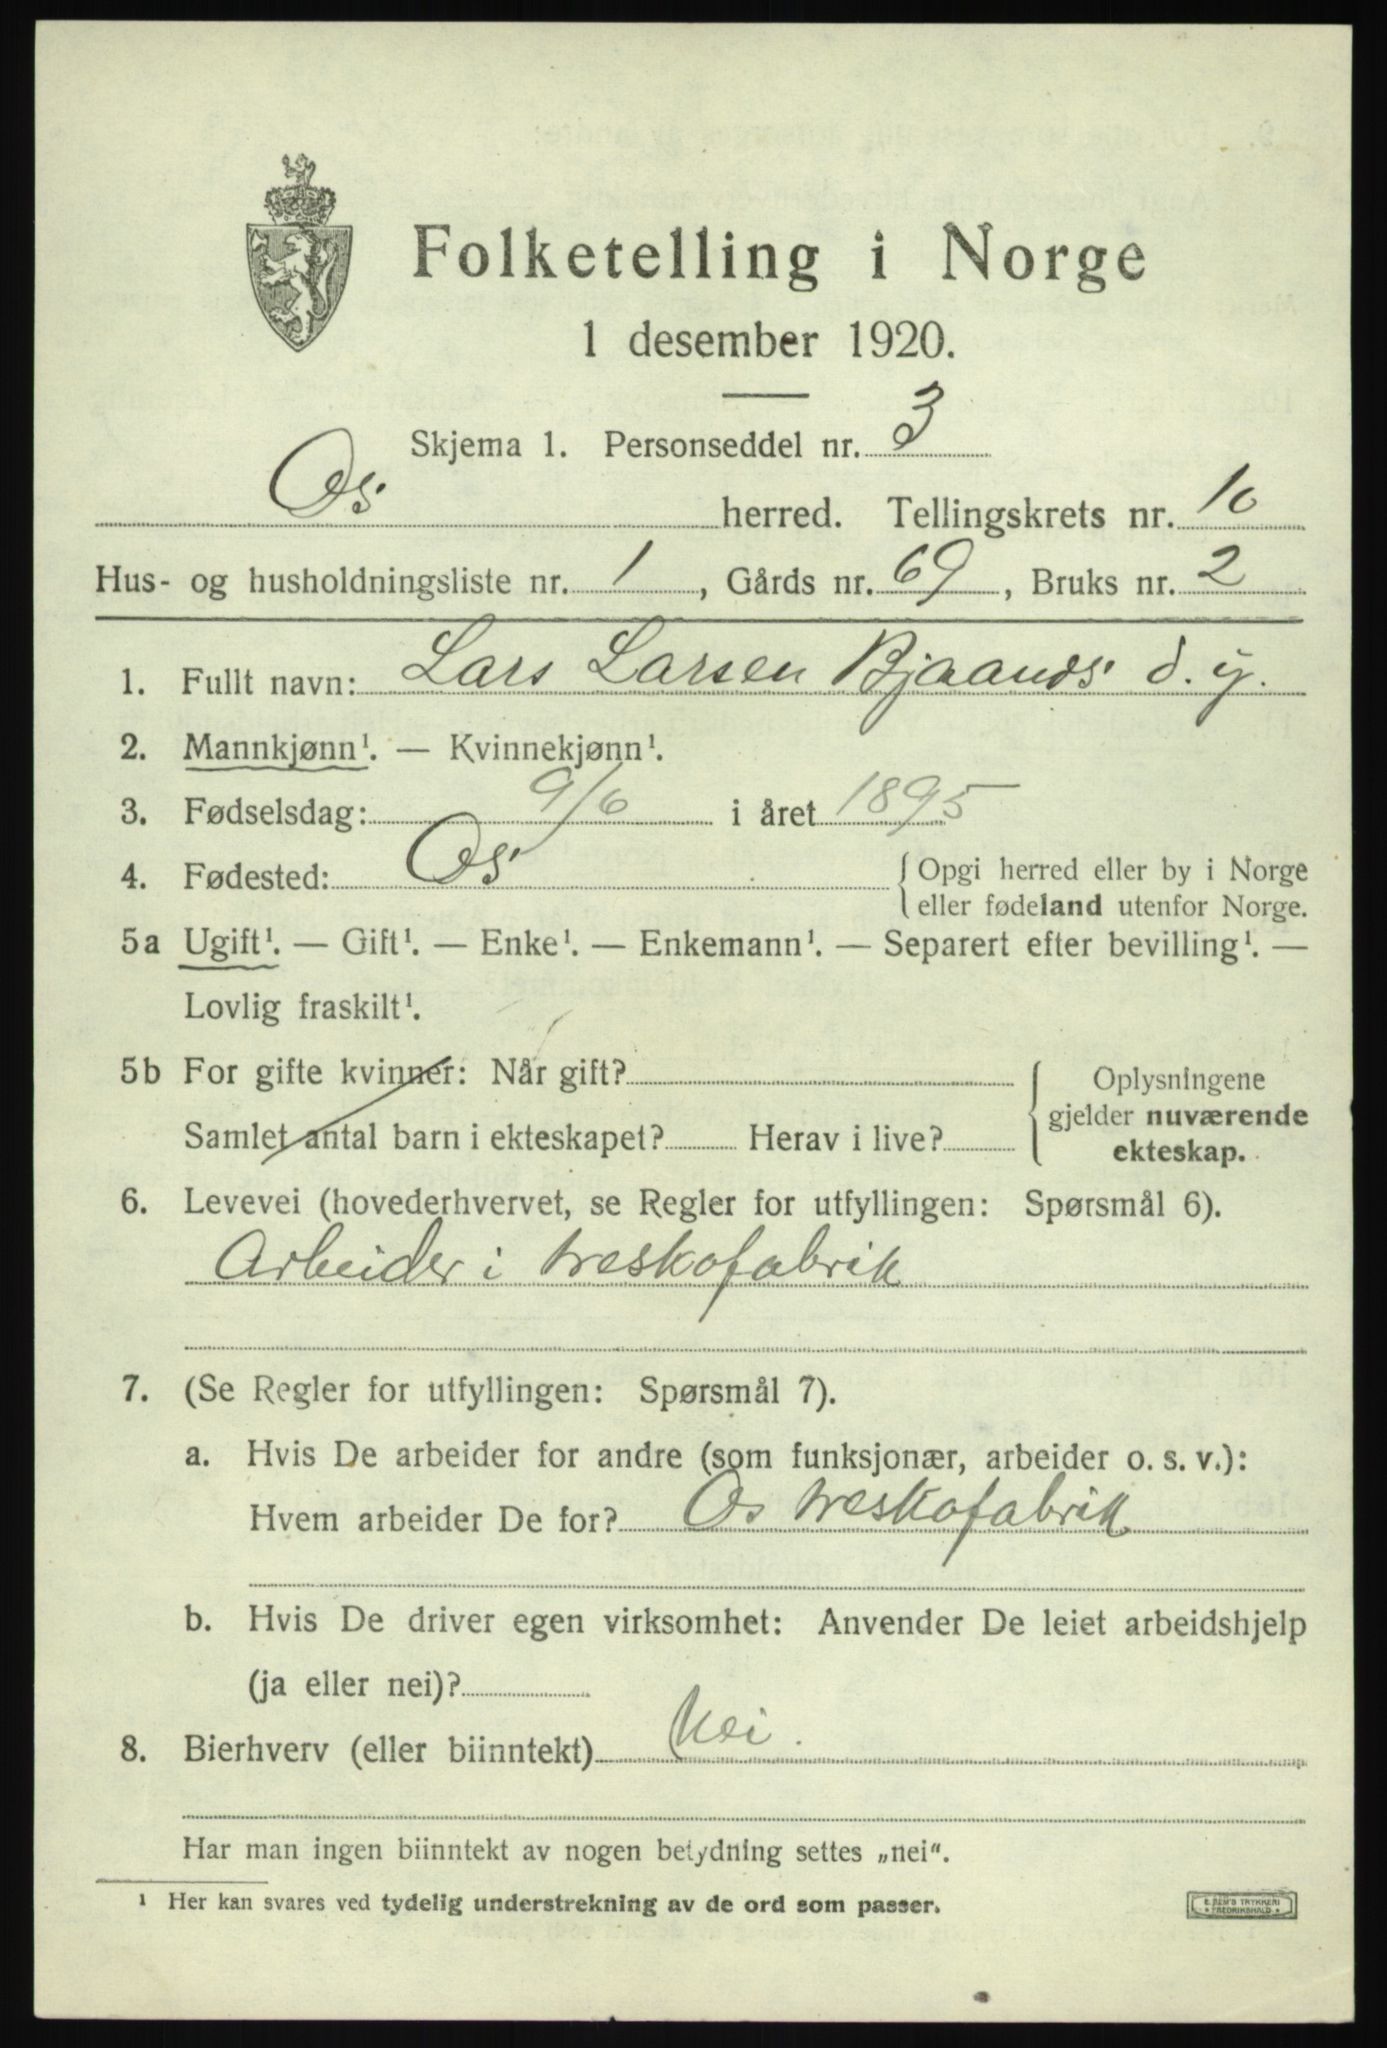 Folketelling i Norge
1 desember 1920.
Skjema 1. Personseddel nr. 3
Os herred. Tellingskrets nr. 10
Hus- og husholdningsliste nr. 1, Gårds nr. 69, Bruks nr. 2
1. Fullt navn: Lars Larsen Bjaanes d. y.
2. Mannkjønn¹. — Kvinnekjønn¹.
3. Fødselsdag: 9/6 i året 1895
4. Fødested: Os { Opgi herred eller by i Norge
eller fødeland utenfor Norge.
5a Ugift¹. — Gift¹. — Enke¹. — Enkemann¹. — Separert efter bevilling¹. —
Lovlig fraskilt¹.
5b For gifte kvinner: Når gift?
Samlet antal barn i ekteskapet? Herav i live?
{ Oplysningene
gjelder nuværende
ekteskap.
6. Levevei (hovederhvervet, se Regler for utfyllingen: Spørsmål 6).
Arbeider i treskofabrik
7. (Se Regler for utfyllingen: Spørsmål 7).
a. Hvis De arbeider for andre (som funksjonær, arbeider o. s. v.):
Hvem arbeider De for? Os treskofabrik
b. Hvis De driver egen virksomhet: Anvender De leiet arbeidshjelp
(ja eller nei)?
8. Bierhverv (eller biinntekt) Nei.
Har man ingen biinntekt av nogen betydning settes „nei".
¹ Her kan svares ved tydelig understrekning av de ord som passer.
E. SEM'S TRYKKERI
FREDRIKSHALD